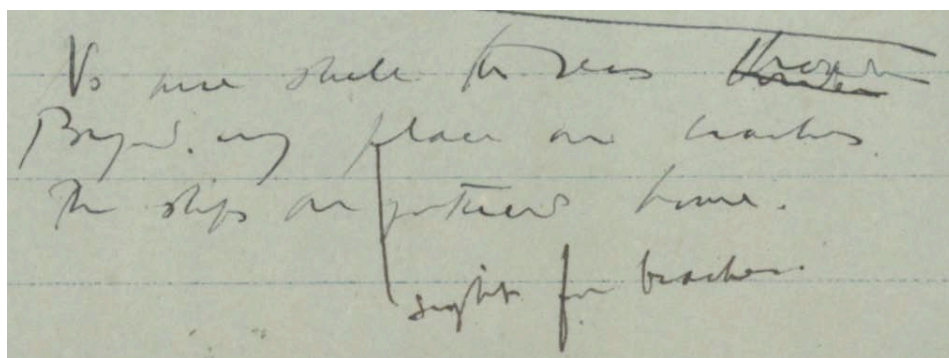 No more shall the seas
Beyond. my place on beaches.
The ships are gathered home.
sights for beaches.